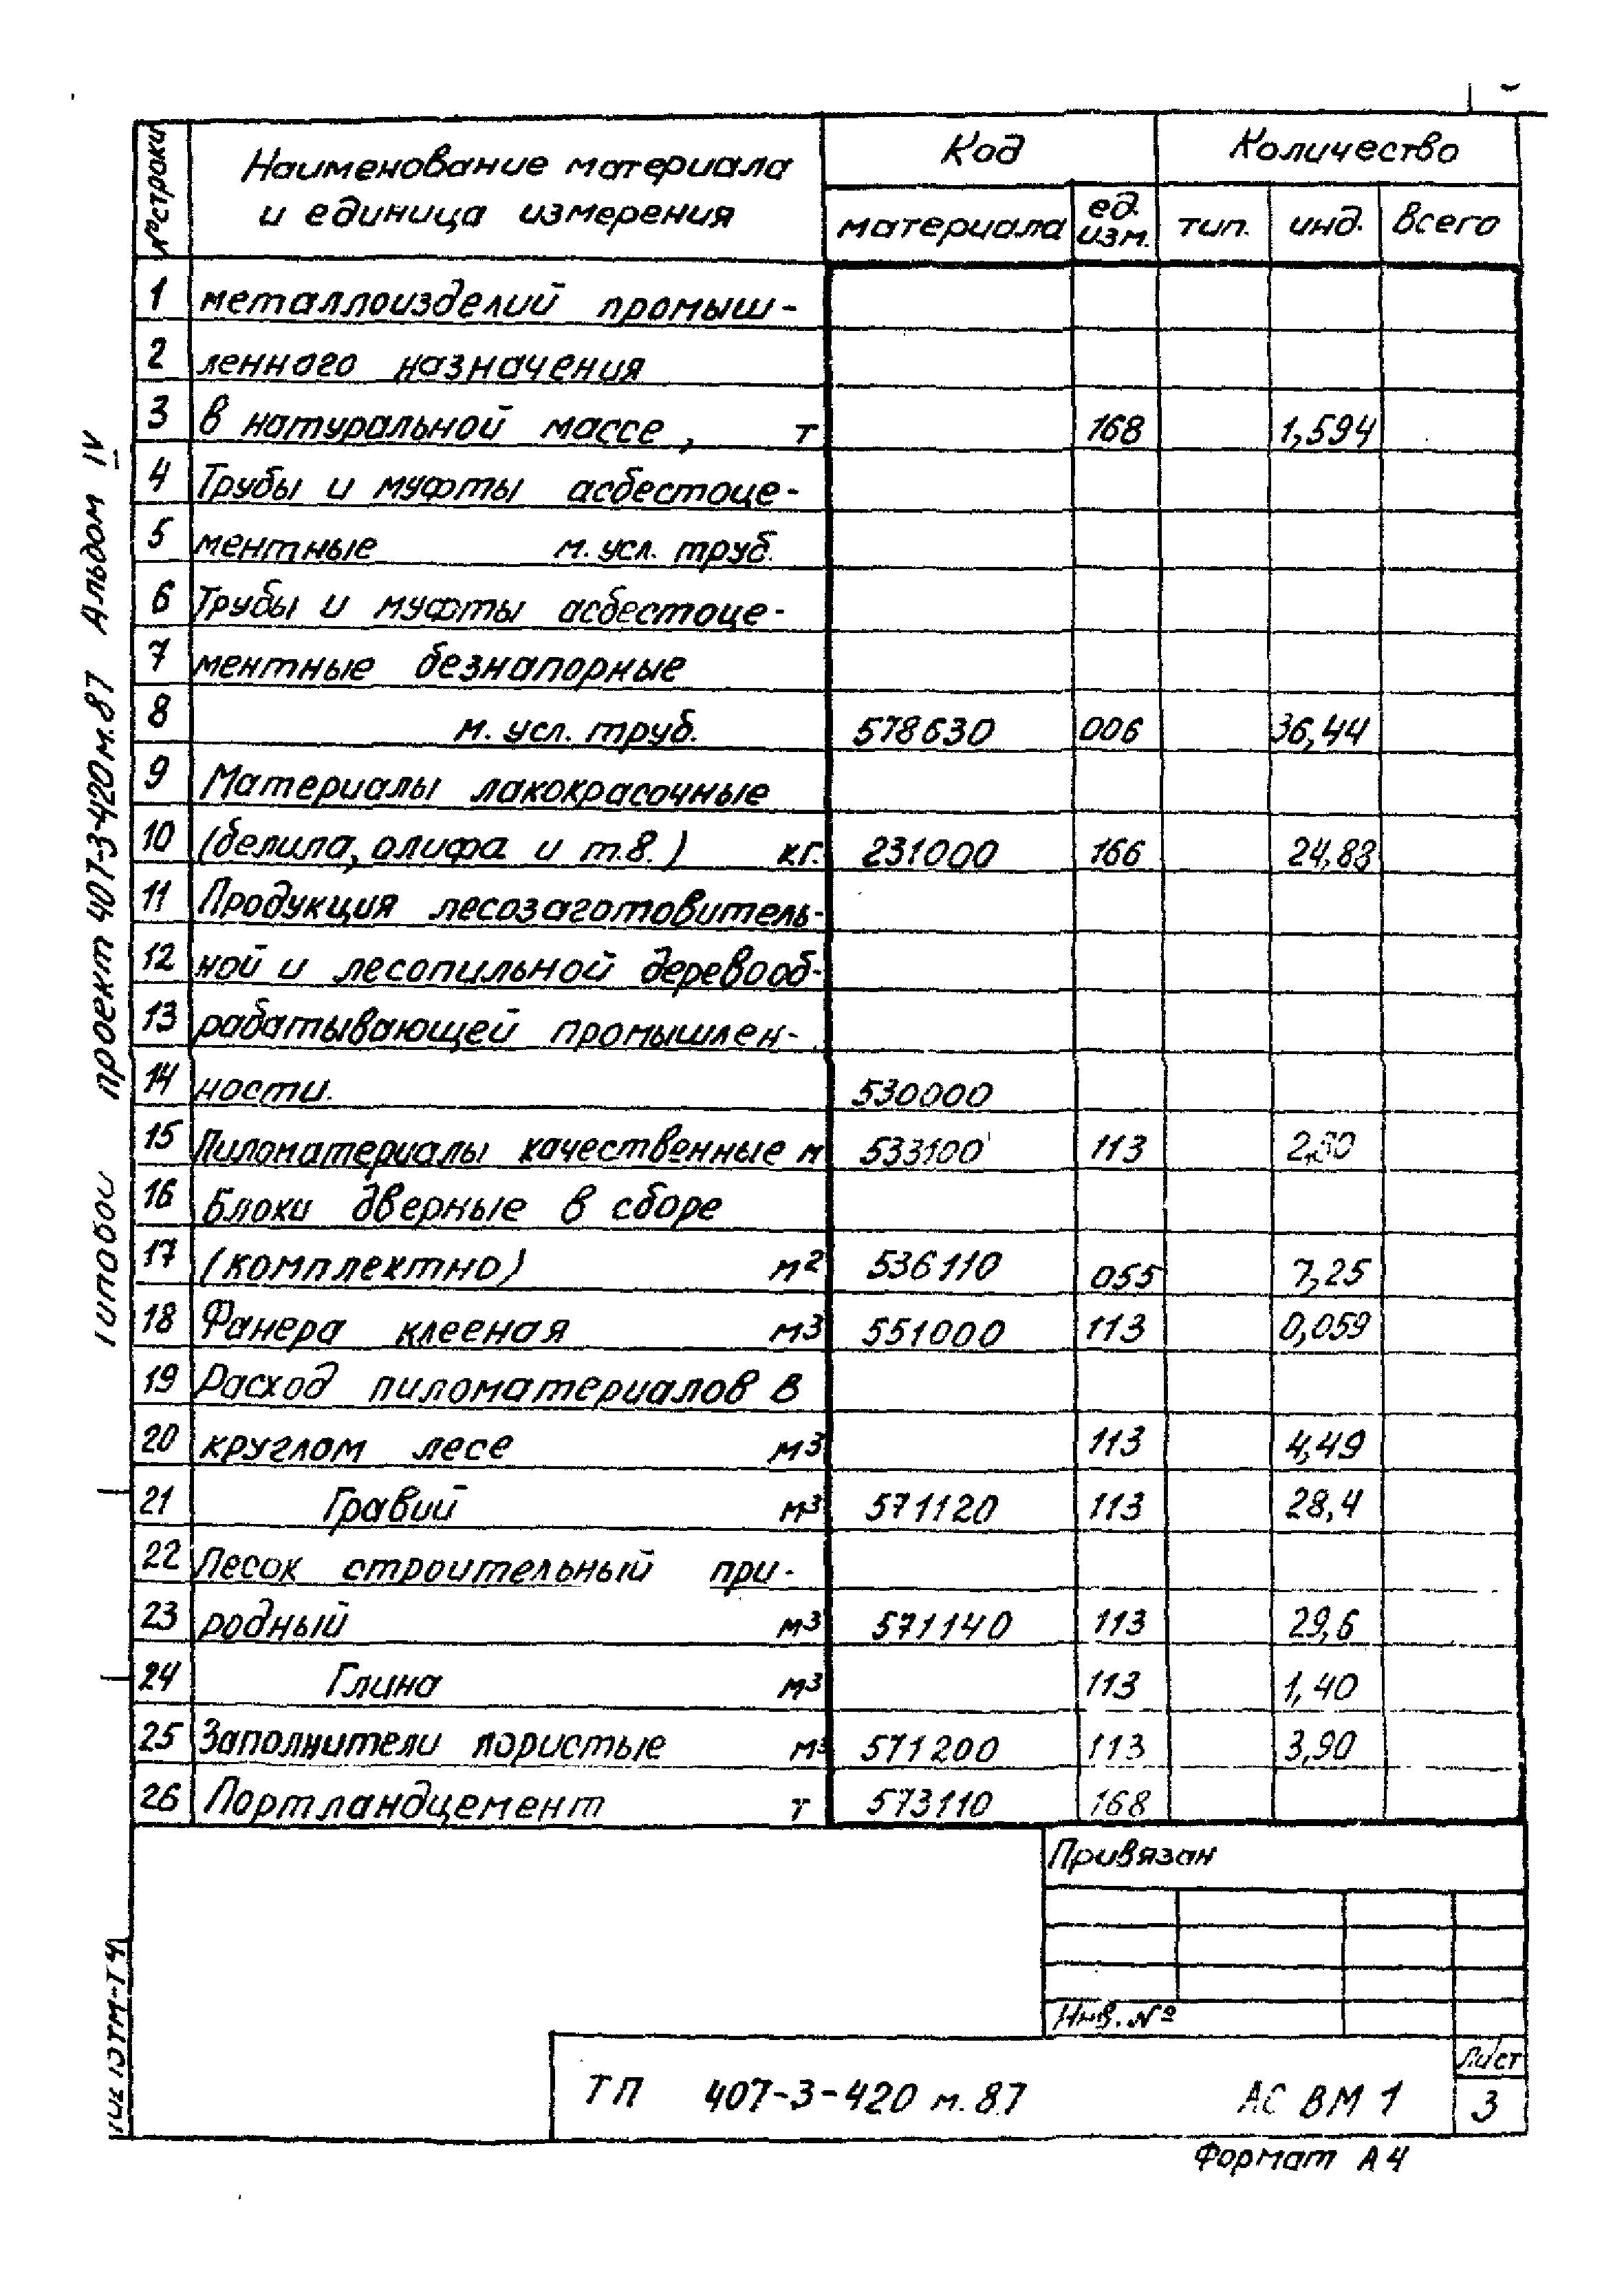 № строки
Наименование материала
и единица измерения
Код
Количество
материала
ед.
изм.
тип.
инд.
всего
1 металлоизделий промыш-
2 ленного назначения
3 в натуральной массе, т 168 1,594
4 Трубы и муфты асбестоце-
5 ментные м. усл. труб.
6 Трубы и муфты асбестоце-
7 ментные безнапорные
8 м. усл. труб. 578630 006 36,44
9 Материалы лакокрасочные
10 (белила, олифа и т.д.) кг. 231000 166 24,83
11 Продукция лесозаготовитель-
12 ной и лесопильной деревооб-
13 рабатывающей промышлен-
14 ности. 530000
15 Пиломатериалы качественные м 533100 113
16 Блоки дверные в сборе
17 (комплектно) м² 536110 055 7,25
18 Фанера клееная м³ 551000 113 0,059
19 Расход пиломатериалов в
20 круглом лесе м³ 113 4,49
21 Гравий м³ 571120 113 28,4
22 Песок строительный при-
23 родный м³ 571140 113 29,6
24 Глина м³ 113 1,40
25 Заполнители пористые м³ 571200 113 3,90
26 Портландцемент т 573110 168
Привязан
Инв. №
ТП 407-3-420 м. 87 АС ВМ 1
Лист
3
Формат А4
Типовой проект 407-3-420 м. 87 Альбом IV